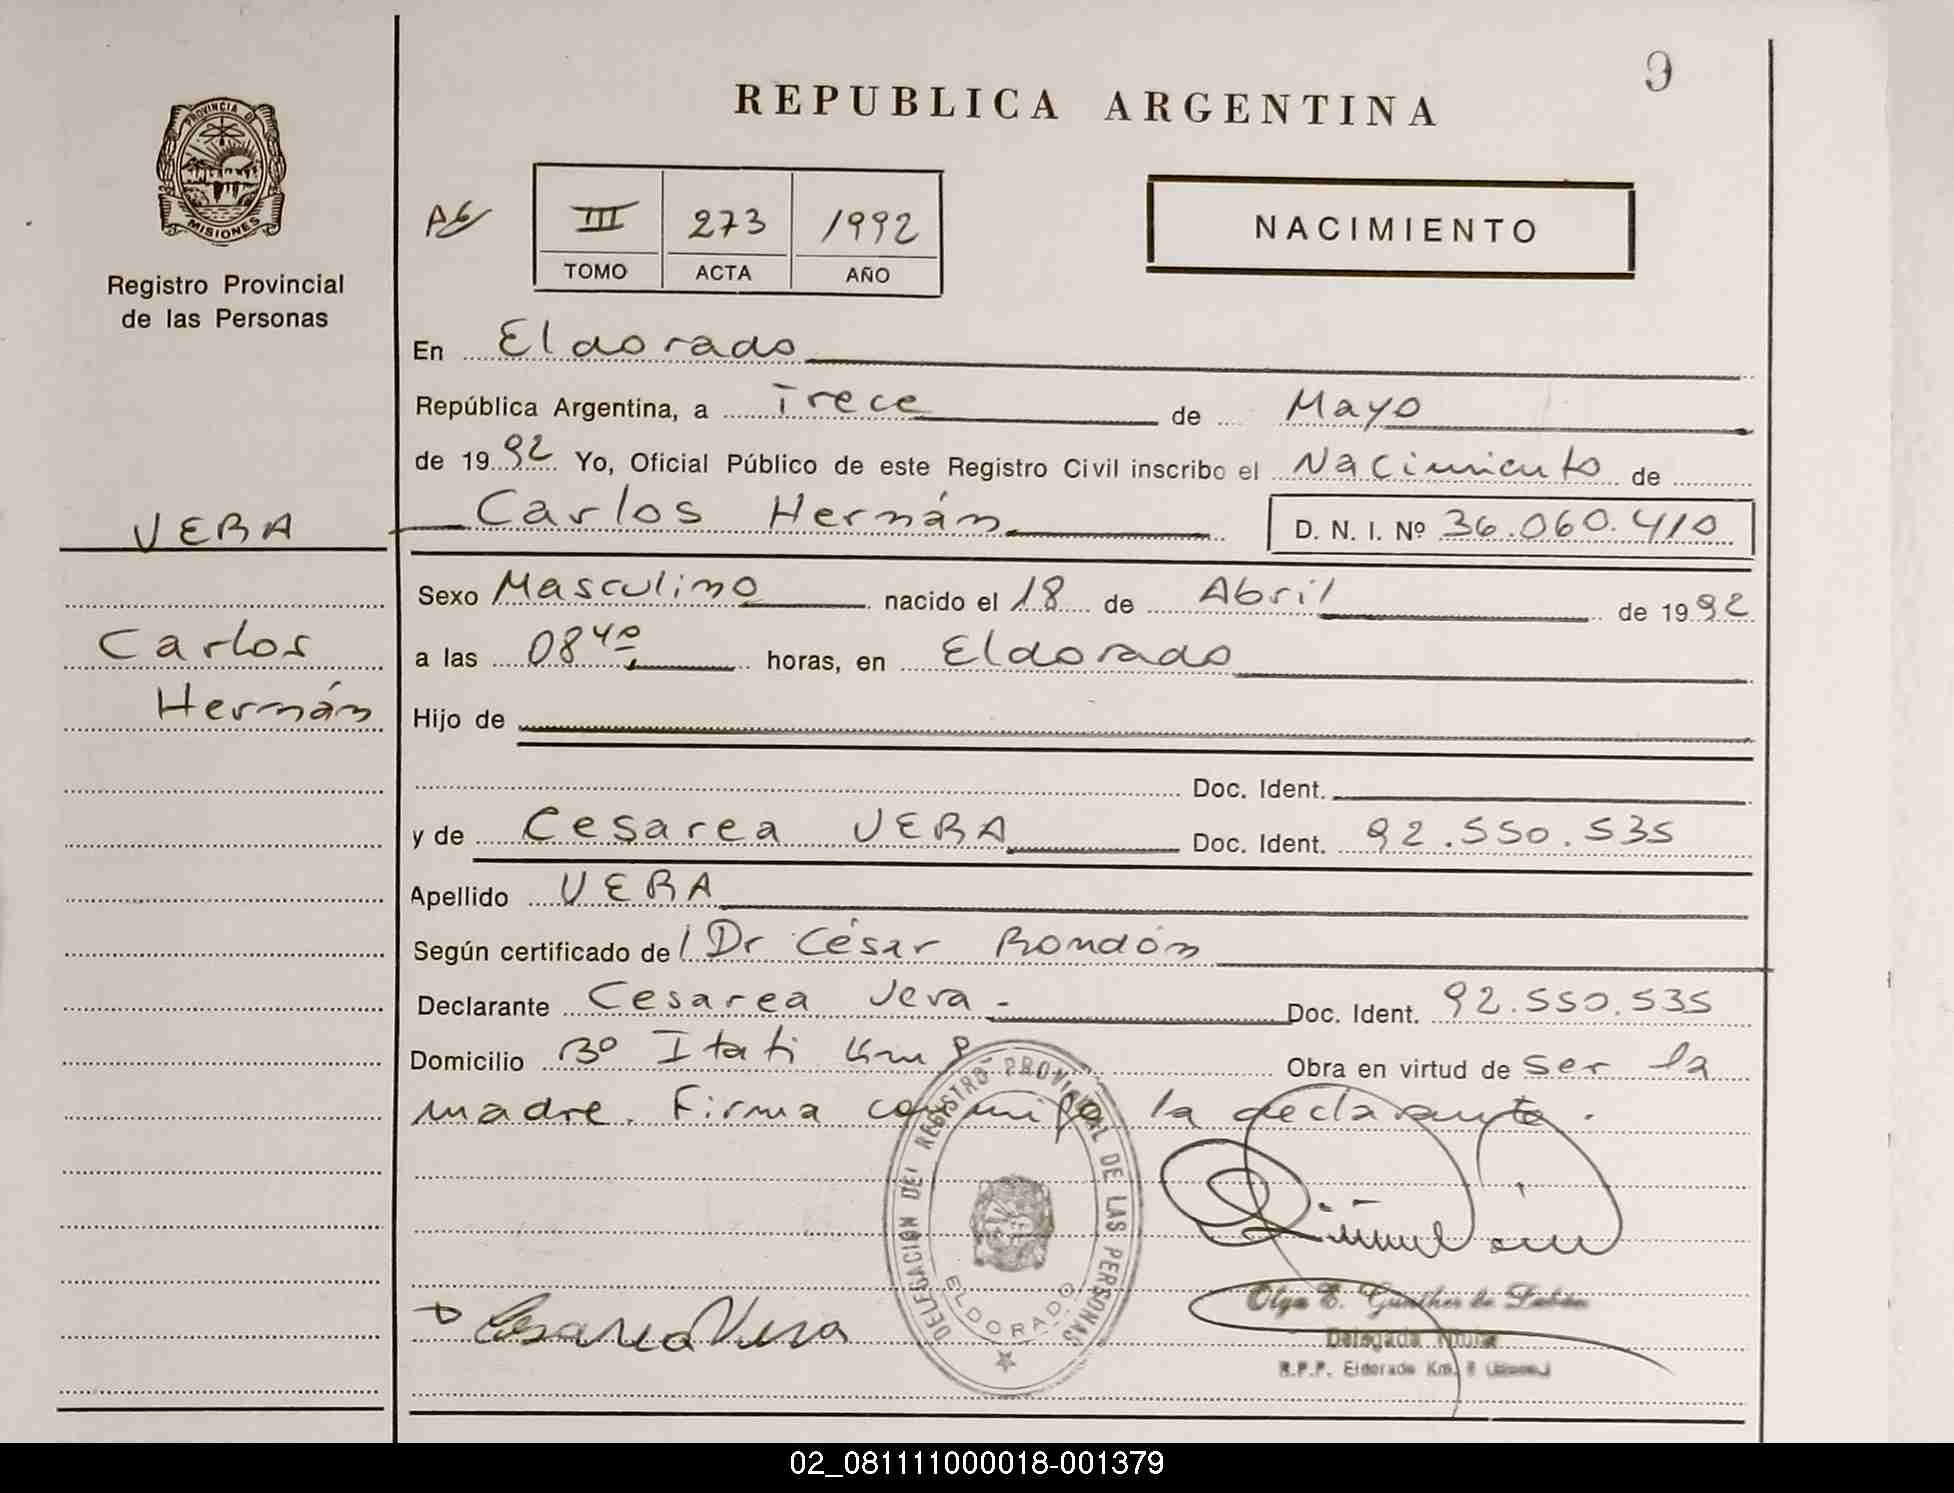 9
REPUBLICA ARGENTINA
PROVINCIA D MISIONES
Registro Provincial
de las Personas
III 273 1992
TOMO ACTA AÑO
NACIMIENTO
En Eldorado
República Argentina, a Trece de Mayo
de 1992 Yo, Oficial Público de este Registro Civil inscribo el Nacimiento de
VERA
Carlos Hernán D. N. I. Nº 36.060.410
Sexo Masculino nacido el 18 de Abril de 1992
Carlos
a las 08 40 horas, en Eldorado
Hernán
Hijo de
Doc. Ident.
y de Cesarea VERA Doc. Ident. 92.550.535
Apellido VERA
Según certificado de Dr César Rondón
Declarante Cesarea Vera - Doc. Ident. 92.550.535
Domicilio Bº Itati Km Obra en virtud de ser la
madre. Firma conmigo la declarante.
DELEGACIÓN DEL REGISTRO PROVINCIAL DE LAS PERSONAS
ELDORADO
Cesarea Vera
Olga E. Günther de
Delegada Titular
R.P.P. Eldorado Km. 8
02_081111000018-001379